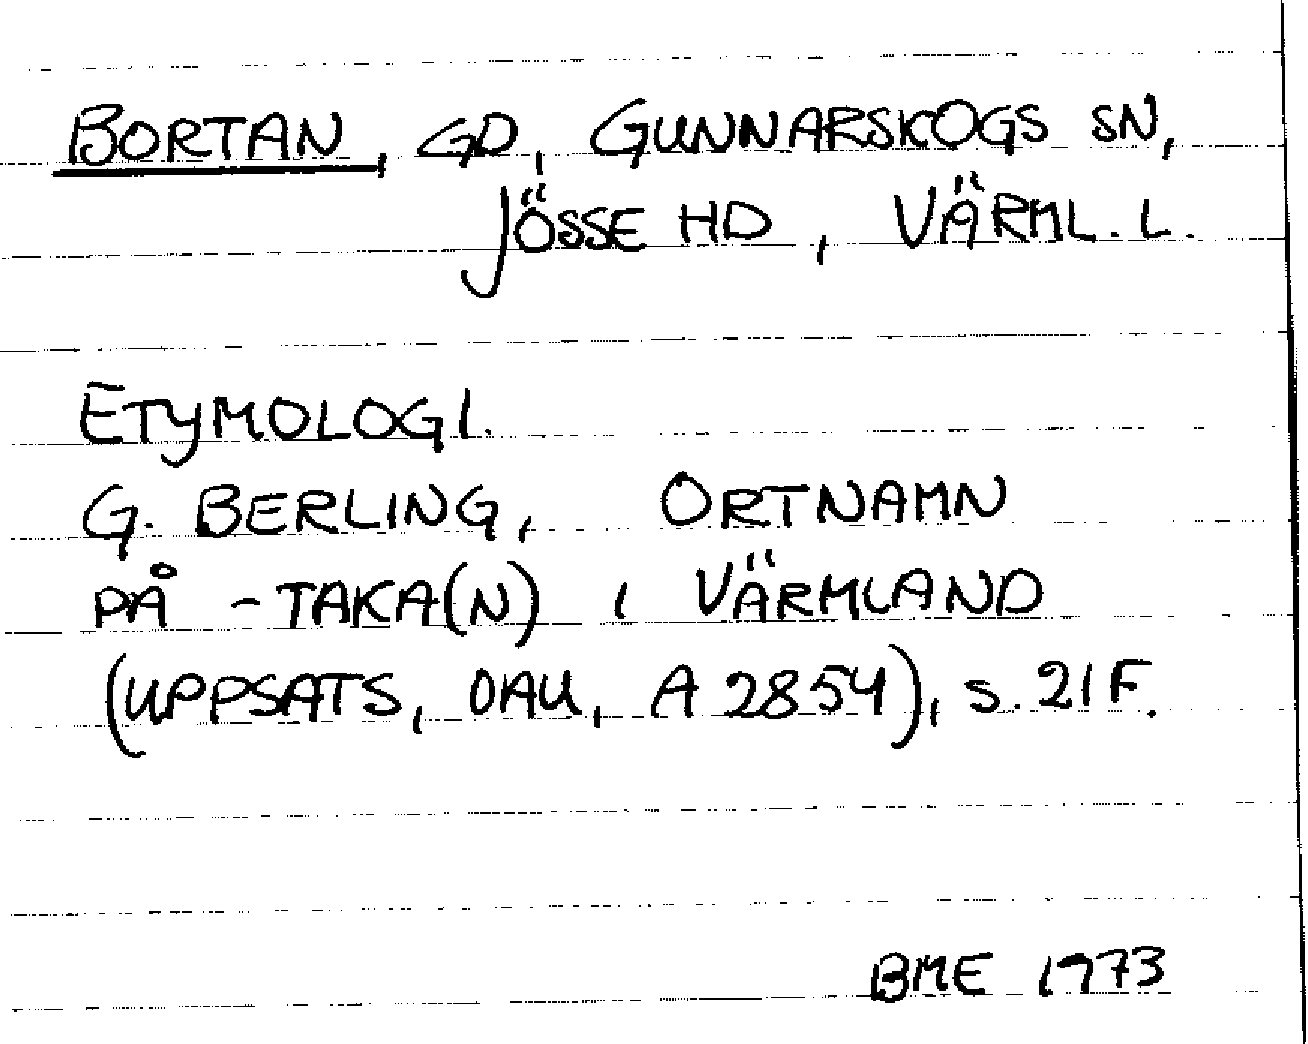 BORTAN, GD, GUNNARSKOGS SN,
JÖSSE HD, VÄRML. L.
ETYMOLOGI.
G. BERLING, ORTNAMN
PÅ -TAKA(N) I VÄRMLAND
(UPPSATS, OAU, A 2854), S. 21F.
BME 1973